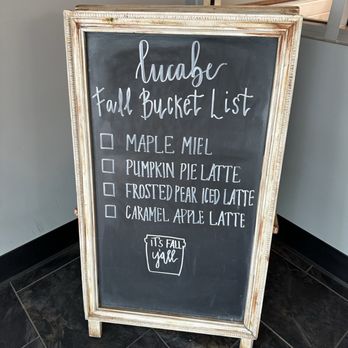 lucabe
Fall Bucket List
MAPLE MIEL
PUMPKIN PIE LATTE
FROSTED PEAR ICED LATTE
CARAMEL APPLE LATTE
IT'S FALL
y'all